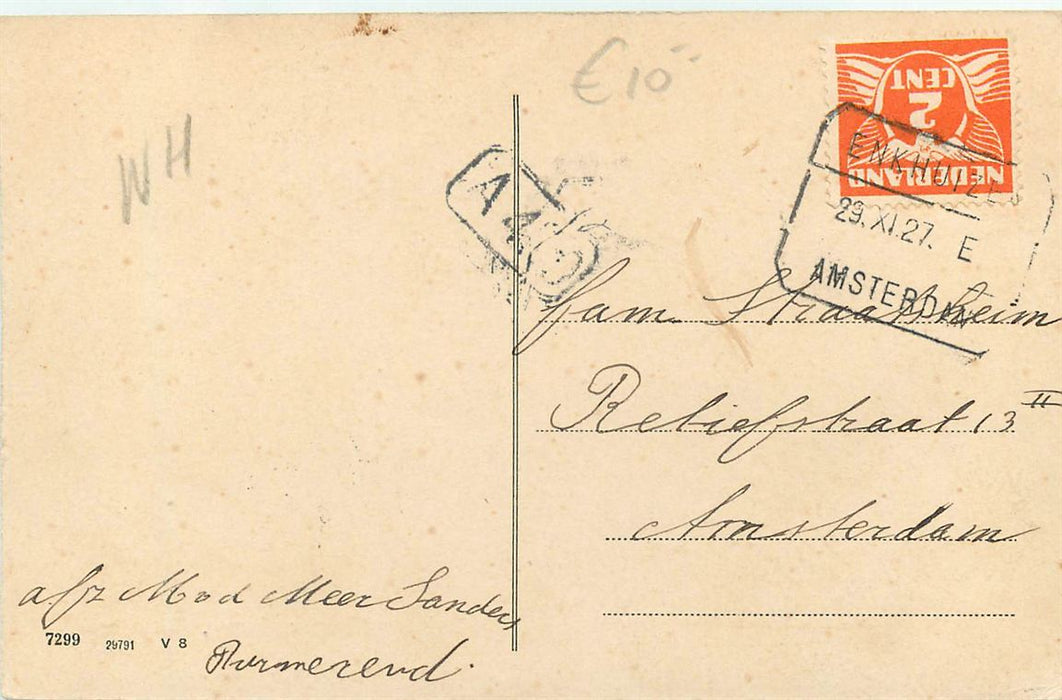 €10-
WH
2
CENT
NEDERLAND
ENKHUIZEN
29.XI.27. E
AMSTERDAM
A
fam Straatsheim
Retiefstraat 13 II
Amsterdam
afz M v d Meer Sanders
Purmerend.
7299 29791 V 8